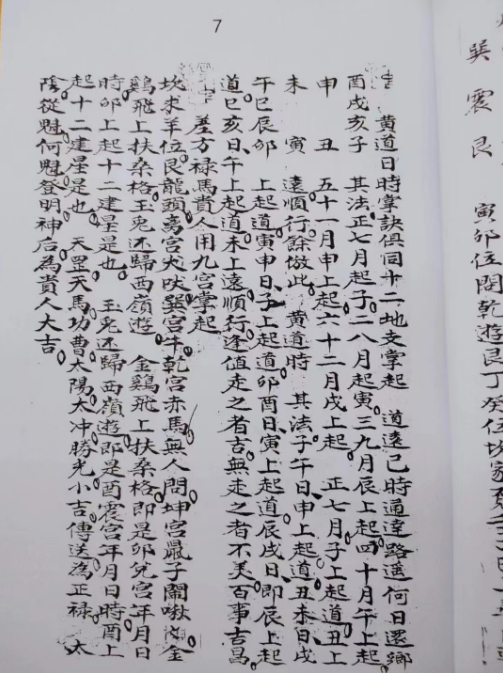 7
吉　黃道日時掌訣俱同十二地支掌起　道遠已時通達路遙何日還鄉
酉戌亥子　其法正七月起子二八月起寅三九月辰上起四十月午上起
申　丑　五十一月申上起六十二月戌上起　正七月子上起道丑上
未　寅　遠順行餘倣此　黃道時　其法子午日申上起道丑未日戌
午巳辰卯　上起道寅申日子上起道卯酉日寅上起道辰戌日即辰上起
道巳亥日午上起道未上遠順行逢值走之者吉無走之者不美百事吉昌
差方祿馬貴人用九宮掌起
坎求羊位艮龍頭离宮犬吠巽宮牛乾宮赤馬無人問坤宮鼠子鬧啾啾金
鷄飛上扶桑格玉兎还歸西嶺遊　金鷄飛上扶桑格即是卯兌宮年月日
時卯上起十二建星是也　玉兎还歸西嶺遊即是酉震宮年月日時酉上
起十二建星是也　天罡天馬功曹太陽太冲勝光小吉傳送為正祿　太
陰從魁何魁登明神后為貴人大吉
巽震艮　寅卯位問乾遊艮丁